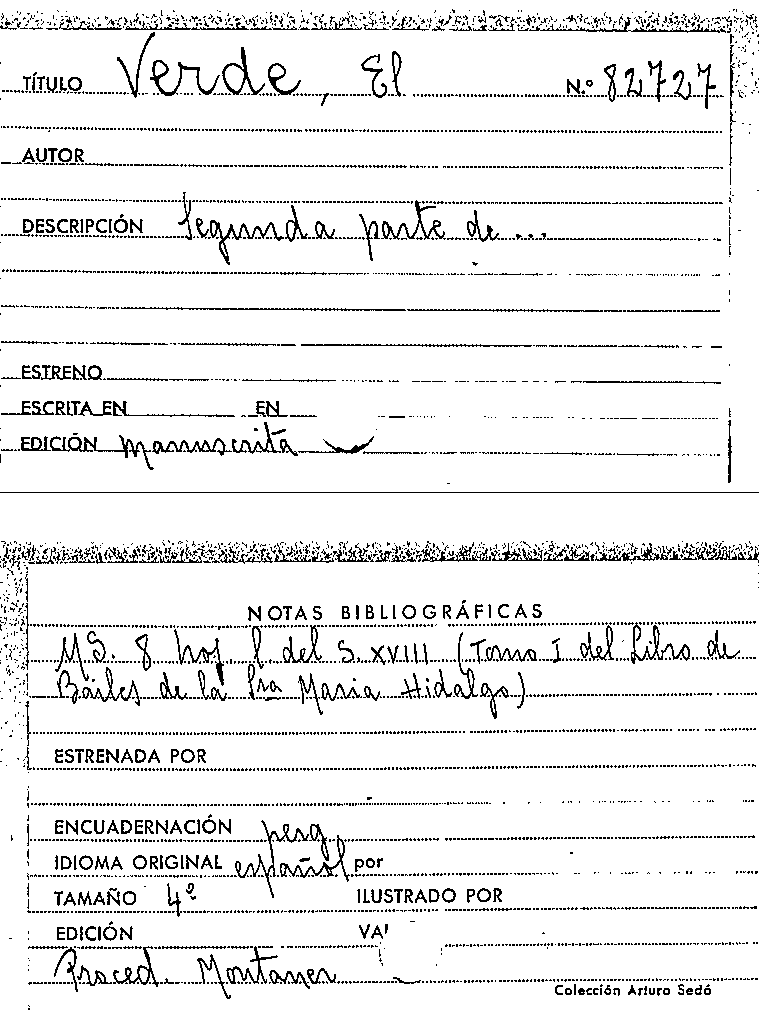 TÍTULO Verde, El N.º 82727
AUTOR
DESCRIPCIÓN Segunda parte de ...
ESTRENO
ESCRITA EN EN
EDICIÓN manuscrita
NOTAS BIBLIOGRÁFICAS
MS. 8 hoj. l. del S. XVIII (Tomo I del Libro de
Bailes de la Sra Maria Hidalgo)
ESTRENADA POR
ENCUADERNACIÓN perg.
IDIOMA ORIGINAL español por
TAMAÑO 4º ILUSTRADO POR
EDICIÓN VA
Proced. Montaner
Colección Arturo Sedó